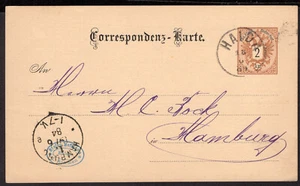 Correspondenz-Karte.
HAID
2
An
Herrn
M. C. Fock
Hamburg
1-7V.
84